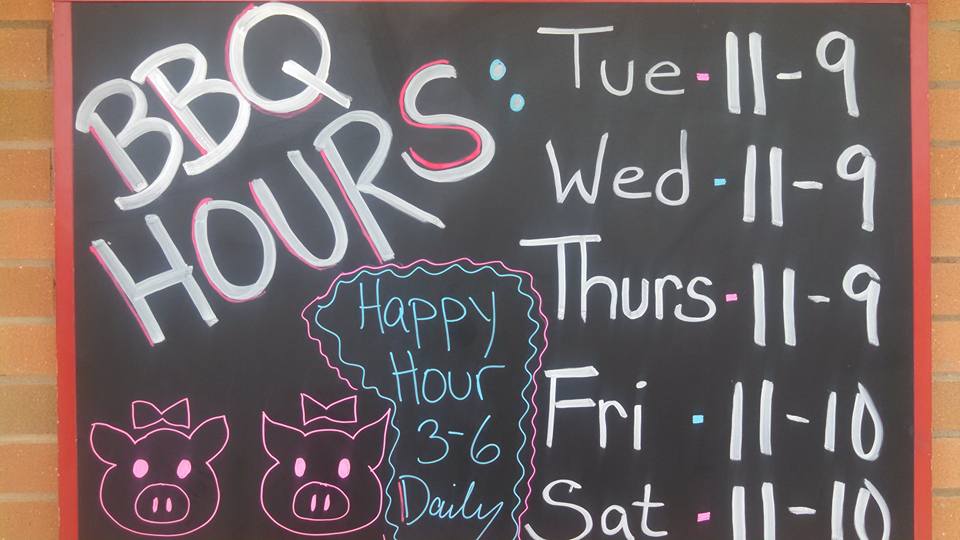 BBQ
HOURS:
Happy
Hour
3-6
Daily
Tue - 11-9
Wed - 11-9
Thurs - 11-9
Fri - 11-10
Sat - 11-10